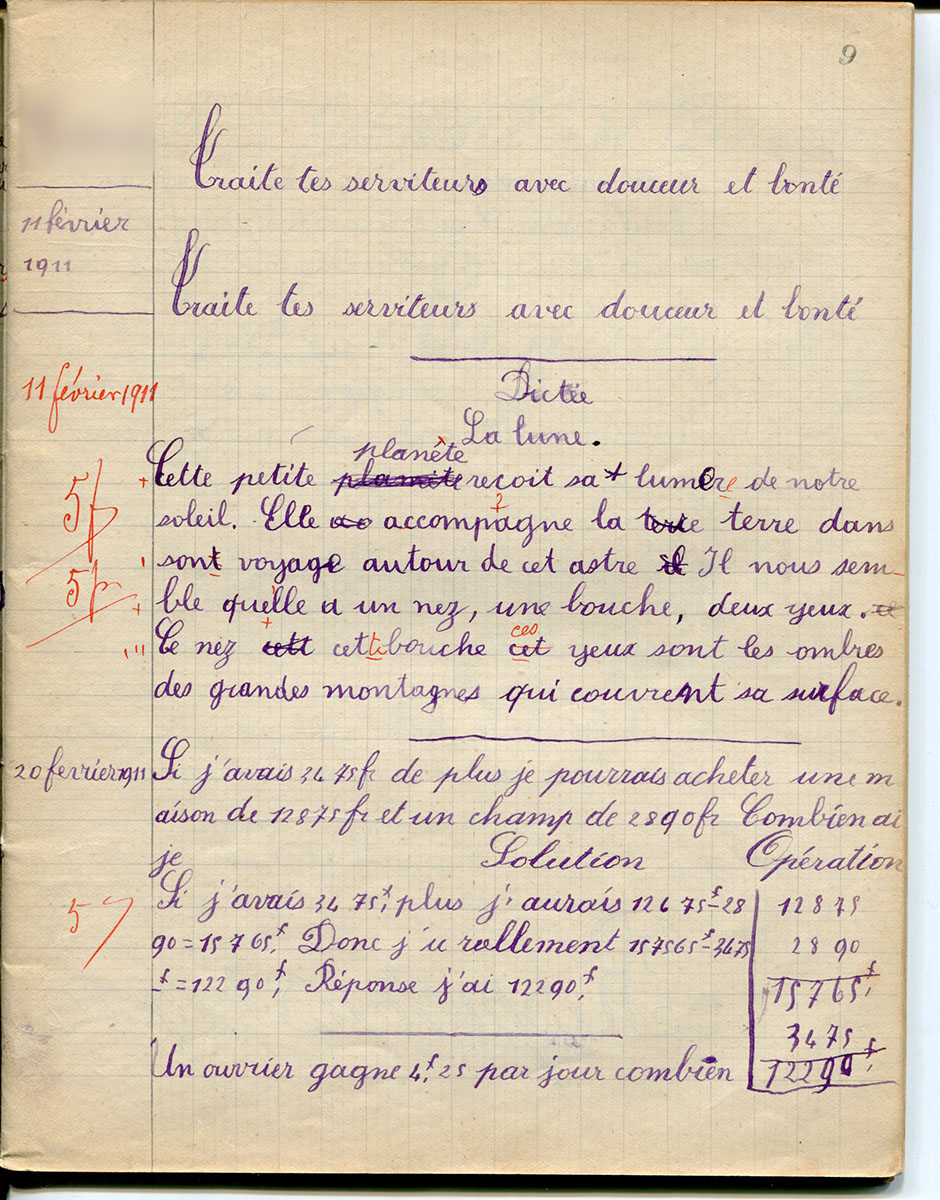 9
Traite tes serviteurs avec douceur et bonté
11 février
1911
Traite tes serviteurs avec douceur et bonté
11 février 1911
Dictée
La lune.
planète
Cette petite reçoit sa lumère de notre
5
soleil. Elle accompagne la terre dans
sont voyage autour de cet astre Il nous sem-
5
ble quelle a un nez, une bouche, deux yeux.
ces
Ce nez cett cette bouche cet yeux sont les ombres
des grandes montagnes qui couvrent sa surface.
20 fevrier 1911
Si j'avais 3475fr de plus je pourrais acheter une m
aison de 12875fr et un champ de 2890fr Combien ai
je Solution Opération
Si j'avais 3475f, plus j'aurais 12675f-28
12875
5
90=15765,f Donc j' rellement 157565f-3475
2890
f=12290f, Réponse j'ai 12290,f
15765,f
3475
Un ouvrier gagne 4,f25 par jour combien
12290,f